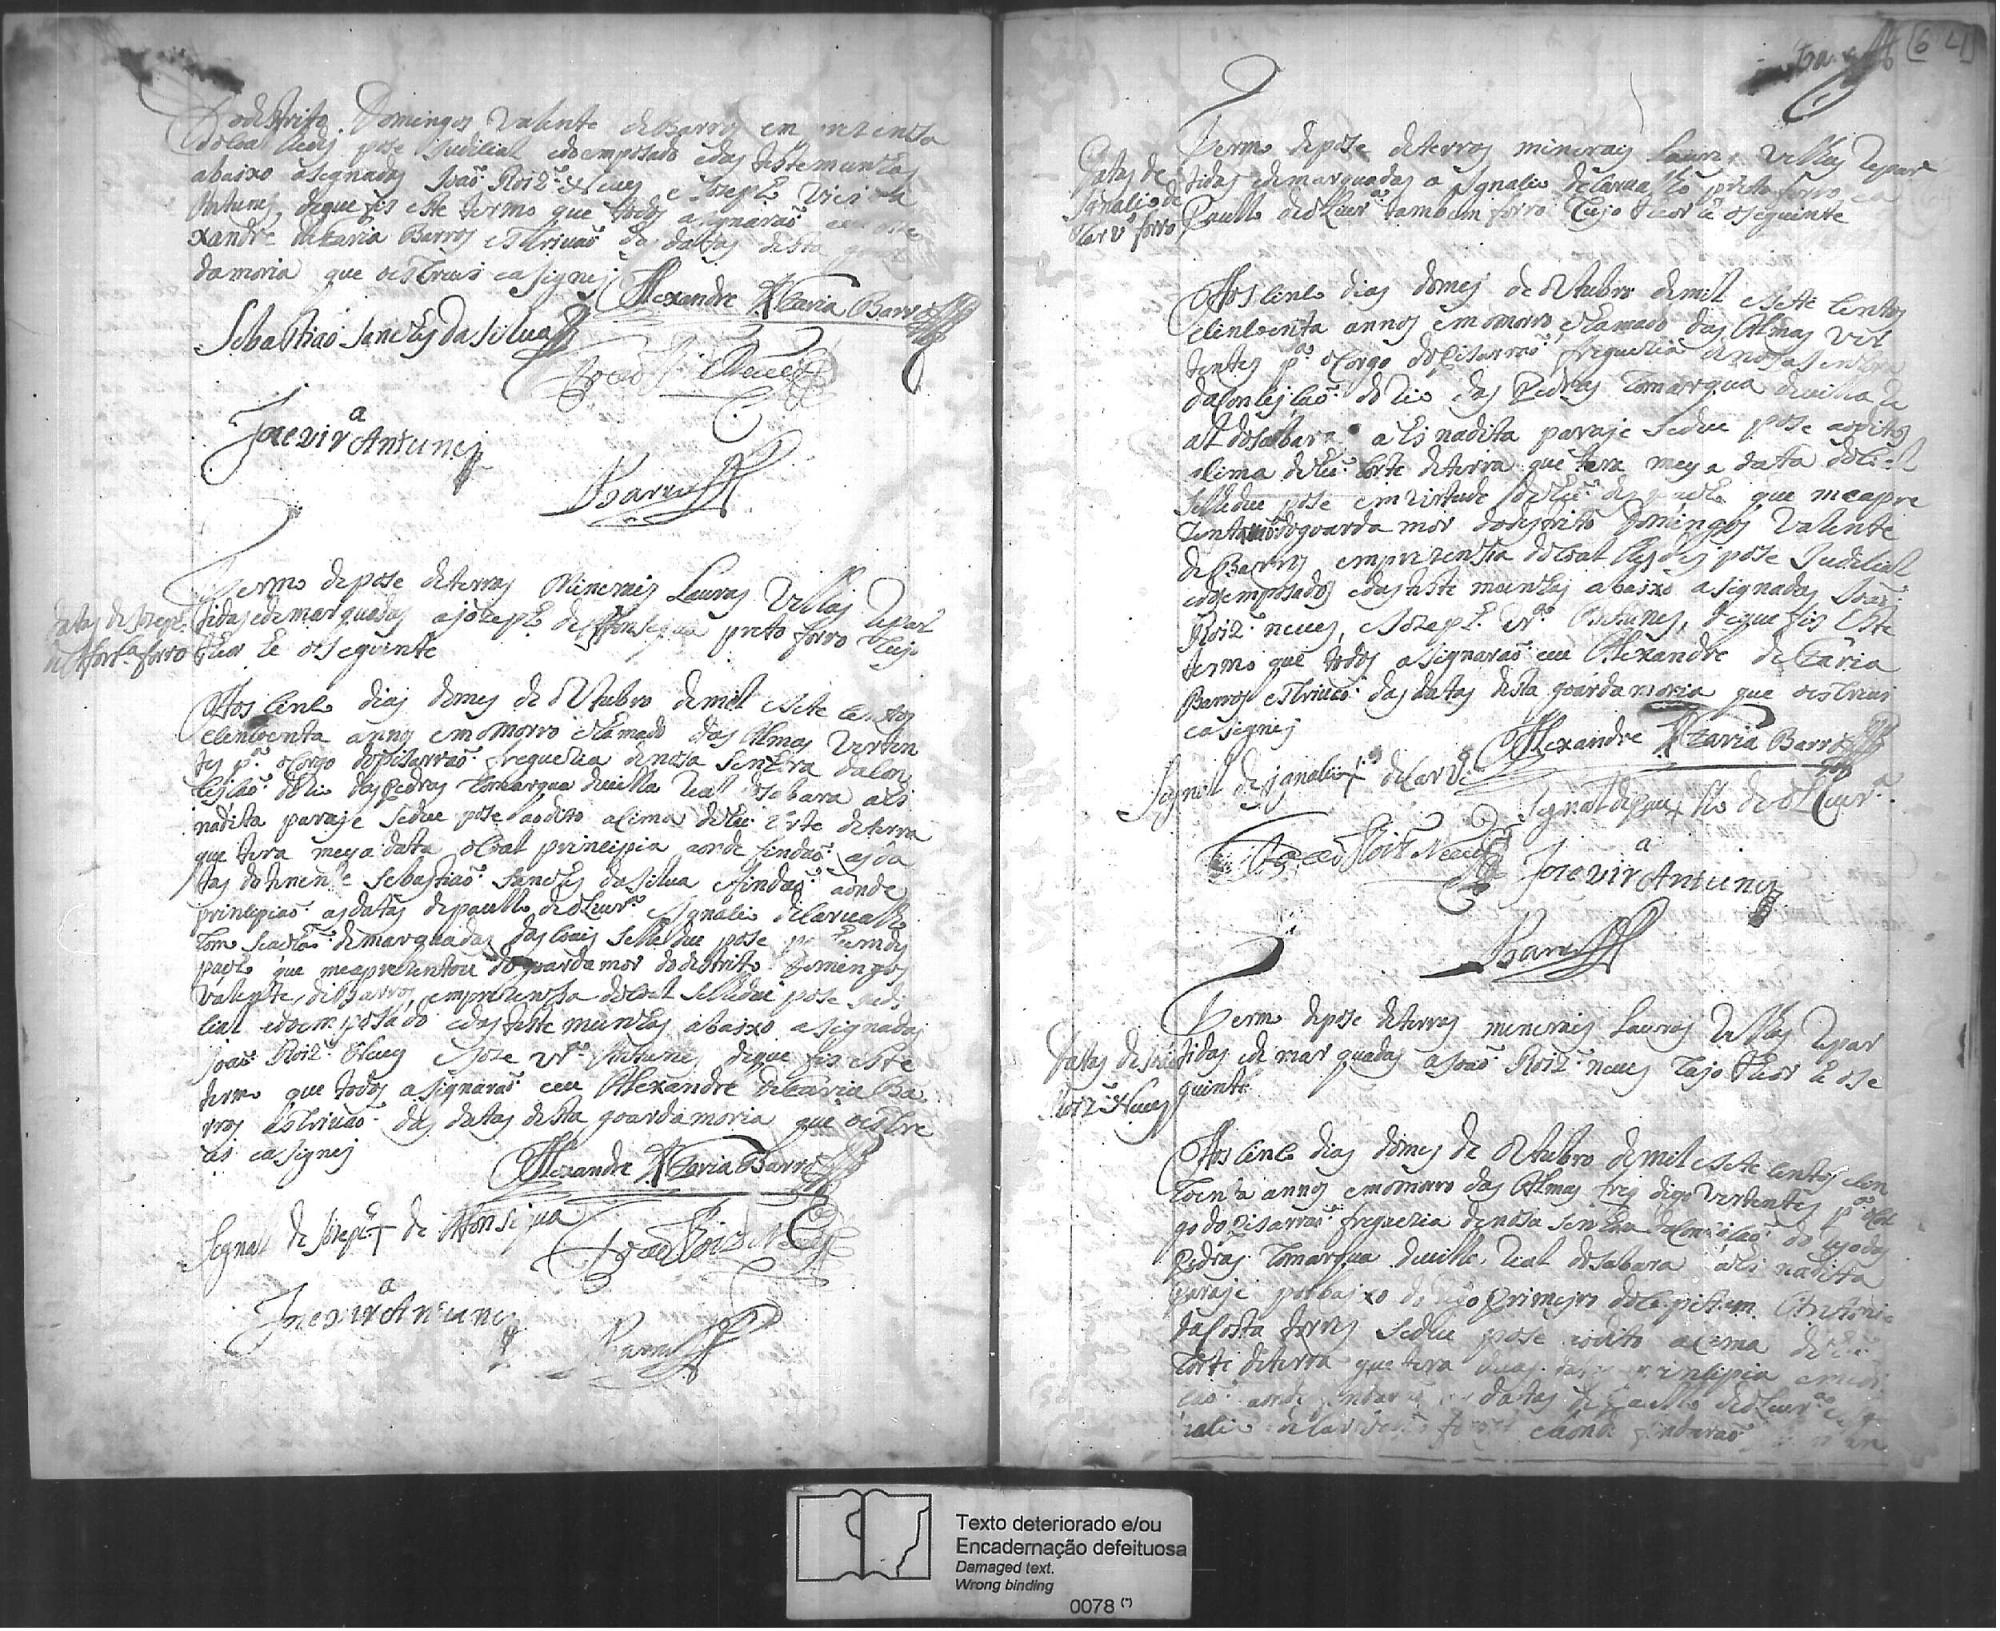 do destrito Domingos Valente de Barros em prezensa
do coal lhe dei pose Judicial e do emposado e das testemunhas
abaixo asignadas Joaõ Roiz Neves e Joseph Vieira
Antunes, de que fis este termo que todos asignaraõ eu Ale
xandre de faria Barros escrivaõ das datas desta goar
damoria que o escrevi e asignej
Alexandre de faria Barros
Sebastiaõ Sanches da Silva
Joaõ Roiz Neves
Joze Vir.a Antunes
Barros
Termo de pose de terras Minerais Lauras Velhas Repar
tidas e demarquadas a Jozeph de Afonsequa preto forro cujo
theor he o seguinte
datas de Jozeph
de Afon.ca forro
Aos sinco dias do mes de Outubro de mil e sete centos
e sincoenta annos em o morro chamado das Almas Verten
tes p.a o Corgo do Pisarraõ freguezia de nosa Senhora da Con
ceiçaõ do Rio das Pedras Comarqua da villa Real do Sabara ahi
na dita paraje se deu pose ao dito asima de hu corte de terra
que tera meya data o coal prinsipia aonde findaõ as da
tas do tenente Sebastiaõ Sanches da Silva e findaõ aonde
prinsipiaõ as datas de paullo de Oliver.a e Ignasio de Carvalho
como se achaõ demarquadas das coais se lhe deu pose p hum des
pacho que me aprezentou do goardamor do destrito Domingos
Valente de Barros em prezensa do coal se lhe deu pose Judi
cial e do emposado e das testemunhas abaixo asignadas
Joaõ Roiz Neves e Joze Vr.a Antunes de que fis este
termo que todos asignaraõ e eu Alexandre de faria Ba
rros Escrivaõ das datas desta goardamoria que o escre
vi e asignej
Alexandre de faria Barros
Signal de Jozeph + de Afonsequa
Joaõ Roiz Neves
Joze Vir.a Antunes
Barros
64
Barros
Termo de pose de terras minerais Lauras Velhas Repar
tidas e demarquadas a Ignasio de Carvalho preto forro e a
Paullo de Oliver.a tambem forro Cujo theor he o seguinte
Datas de
Ignasio de
Carv.o forro
Aos sinco dias do mes de Outubro de mil e sete centos
e sincoenta annos em o morro chamado das Almas Ver
tentes p.a o Corgo do Pisarraõ freguezia de nosa Senhora
da Conceiçaõ do Rio das Pedras Comarqua da villa Re
al do Sabara ahi na dita paraje se deu pose aos ditos
asima de hu corte de terra que tera meya data do coal
se lhe deu pose em virtude de hu despacho que me apre
zentaraõ do goardamor do destrito Domingos Valente
de Barros em prezensia do coal lhes dej pose Judicial
e dos emposados e das testemunhas abaixo asignadas Joaõ
Roiz neves, e Jozeph Vr.a Antunes, de que fis este
termo que todos asignaraõ e eu Alexandre de faria
Barros escrivaõ das datas desta goardamoria que o escrevi
e asignej
Alexandre de faria Barros
Signal de Ignasio + de Carv.o
Signal de Pau + llo de Oliver.a
Joaõ Roiz Neves
Joze Vir.a Antunes
Barros
Termo de pose de terras minerais Lauras Velhas Repar
tidas e demarquadas a Joaõ Roiz neves Cujo theor he o se
guinte
Datas de Joaõ
Roiz Neves
Aos sinco dias do mes de Outubro de mil e sete centos e sin
coenta annos em o morro das Almas freg digo Vertentes p.a o Cor
go do Pisarraõ freguezia de nosa Senhora da Conceiçaõ do Rio das
Pedras Comarqua da villa Real do Sabara ahi na dita
paraje por baixo do Rego primejro do Capitam Antonio
da Costa torres se deu pose ao dito asima de hu
corte de terra que tera duas datas prinsipia
aonde findaraõ as datas de Paullo de Oliver.a e Ig
nasio de Carvalho forros e aonde findaraõ
Texto deteriorado e/ou
Encadernação defeituosa
Damaged text.
Wrong binding
0078 (*)